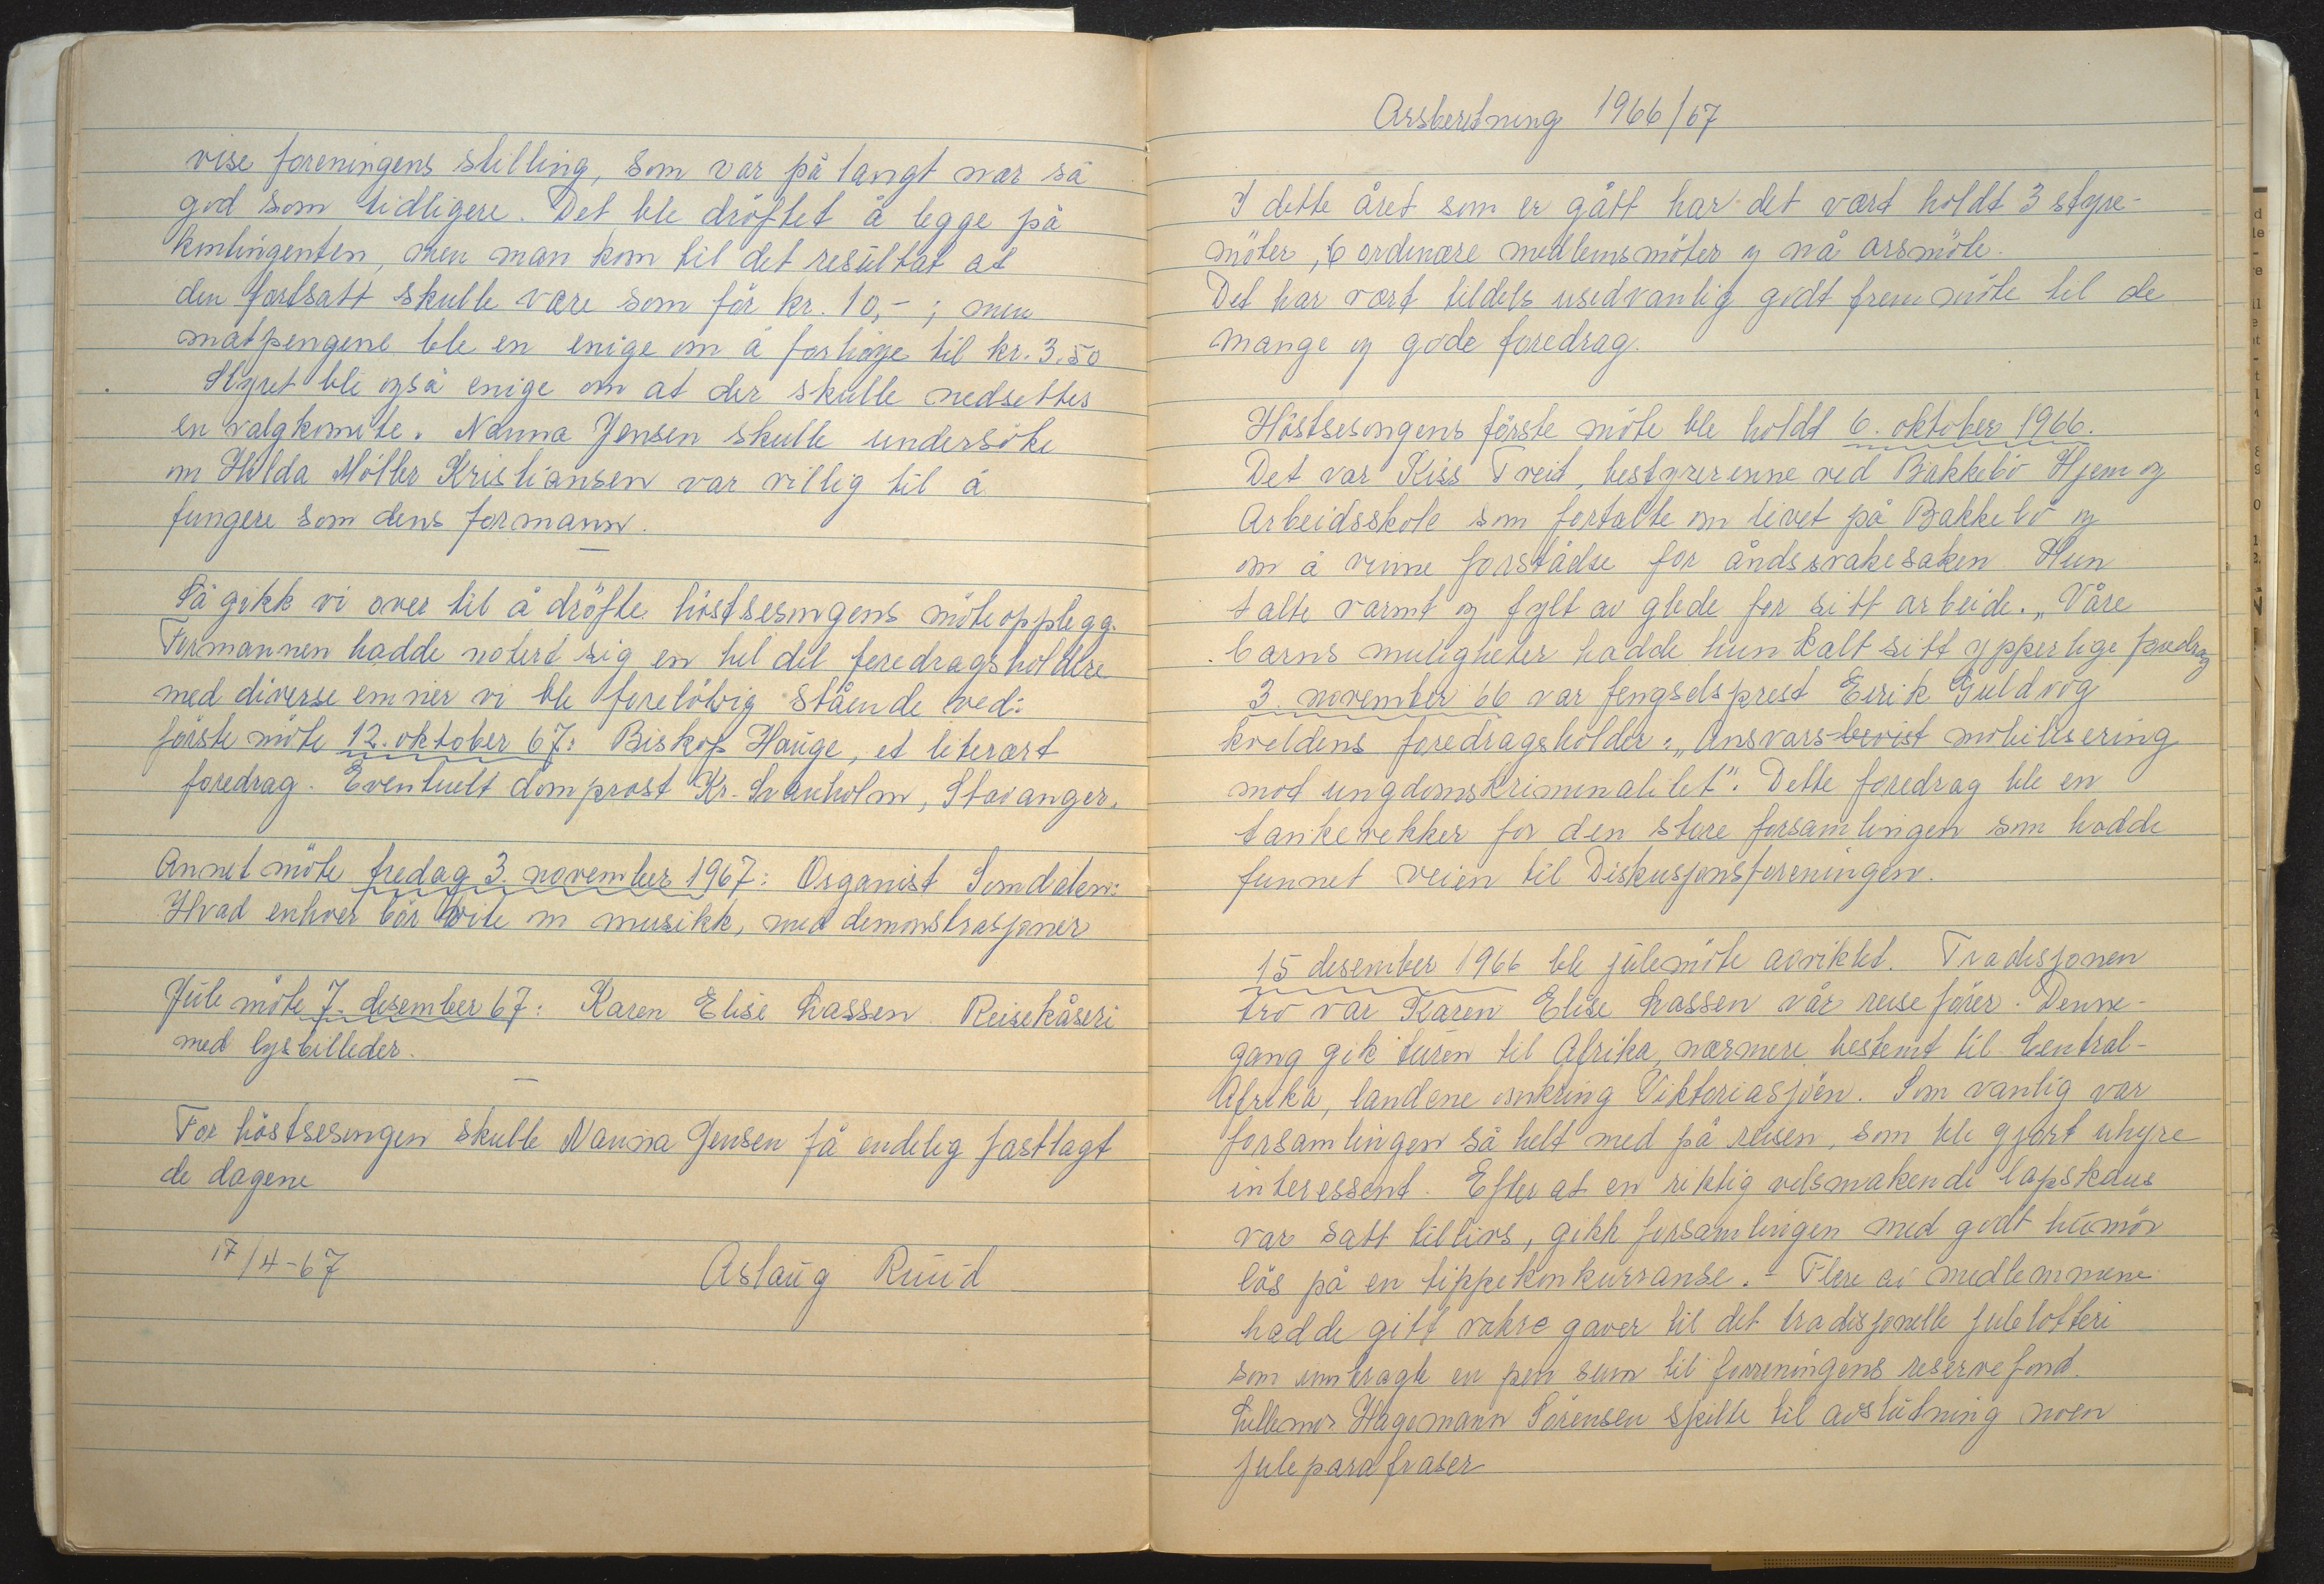 vise foreningens stilling, som var på langt nær så
god som tidligere. Det ble dröftet å legge på
kontingenten, men man kom til det resultat at
den fortsatt skulle være som för kr. 10,- ; men
matpengene ble en enige om å forhöye til kr. 3.50
Styret ble også enige om at der skulle nedsettes
en valgkomite. Nanna Jensen skulle undersöke
om Hilda Möller Kristiansen var villig til å
fungere som dens formann.
Så gikk vi over til å dröfte höstsesongens möteopplegg.
Formannen hadde notert sig en hel del foredragsholdere
med diverse emner vi ble forelöbig stående ved:
förste möte 12. oktober 67: Biskop Hauge, et literært
foredrag. Eventuelt domprost Kr. Svanholm, Stavanger.
Annet möte fredag 3. november 1967: Organist Somdalen:
Hvad enhver bör vite om musikk, med demonstrasjoner
Jule möte 7. desember 67: Karen Elise Lassen Reisekåseri
med lysbilleder.
For höstsesongen skulle Nanna Jensen få endelig fastlagt
de dagene
17/4-67 Aslaug Ruud
Arsberetning 1966/67
I dette året som er gått har det vært holdt 3 styre-
möter, 6 ordinære medlemsmöter og nå arsmöte.
Det har vært tildels usedvanlig godt fremmöte til de
mange og gode foredrag.
Höstsesongens förste möte ble holdt 6. oktober 1966.
Det var Kiss Tveit, bestyrerinne ved Bakkebö Hjem og
Arbeidsskole som fortalte om livet på Bakkebö og
om å vinne forståelse for åndssvakesaken Hun
talte varmt og fylt av glede for sitt arbeide. „Våre
barns muligheter hadde hun kalt sitt ypperlige foredrag
3. november 66 var fengselsprest Eirik Guldvog
kveldens foredragsholder: „Ansvars-bevist mobilisering
mod ungdomskriminalitet". Dette foredrag ble en
tankevekker for den store forsamlingen som hadde
funnet veien til Diskusjonsforeningen.
15 desember 1966 ble julemöte avviklet. Tradisjonen
tro var Karen Elise Lassen vår reiseförer. Denne-
gang gik turen til Afrika, nærmere bestemt til Central-
Afrika, landene omkring Viktoriasjöen. Som vanlig var
forsamlingen så helt med på reisen, som ble gjort uhyre
interessent. Efter at en riktig velsmakende lapskaus
var satt tillivs, gikk forsamlingen med godt humör
lös på en tippekonkurranse. - Flere av medlemmene
hadde gitt vakre gaver til det tradisjonelle julelotteri
som innbragte en pen sum til foreningens reservefond.
Lillemor Hagemann Sörensen spilte til avslutning noen
juleparafraser